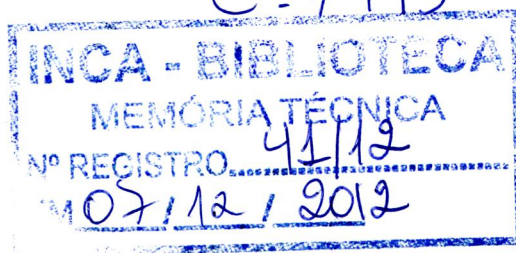 INCA - BIBLIOTECA
MEMÓRIA TÉCNICA
Nº REGISTRO 41/12
EM 07/12/2012